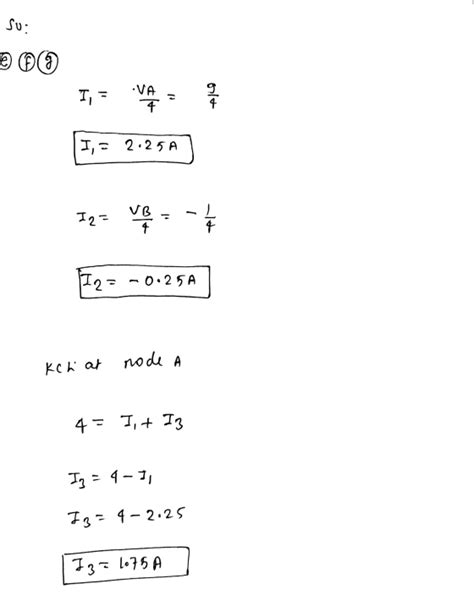 Sol:
e f g
I₁ = VA/4 = 9/4
I₁ = 2.25A
I₂ = VB/4 = -1/4
I₂ = -0.25A
KCL at node A
4 = I₁ + I₃
I₃ = 4 - I₁
I₃ = 4 - 2.25
I₃ = 1.75A